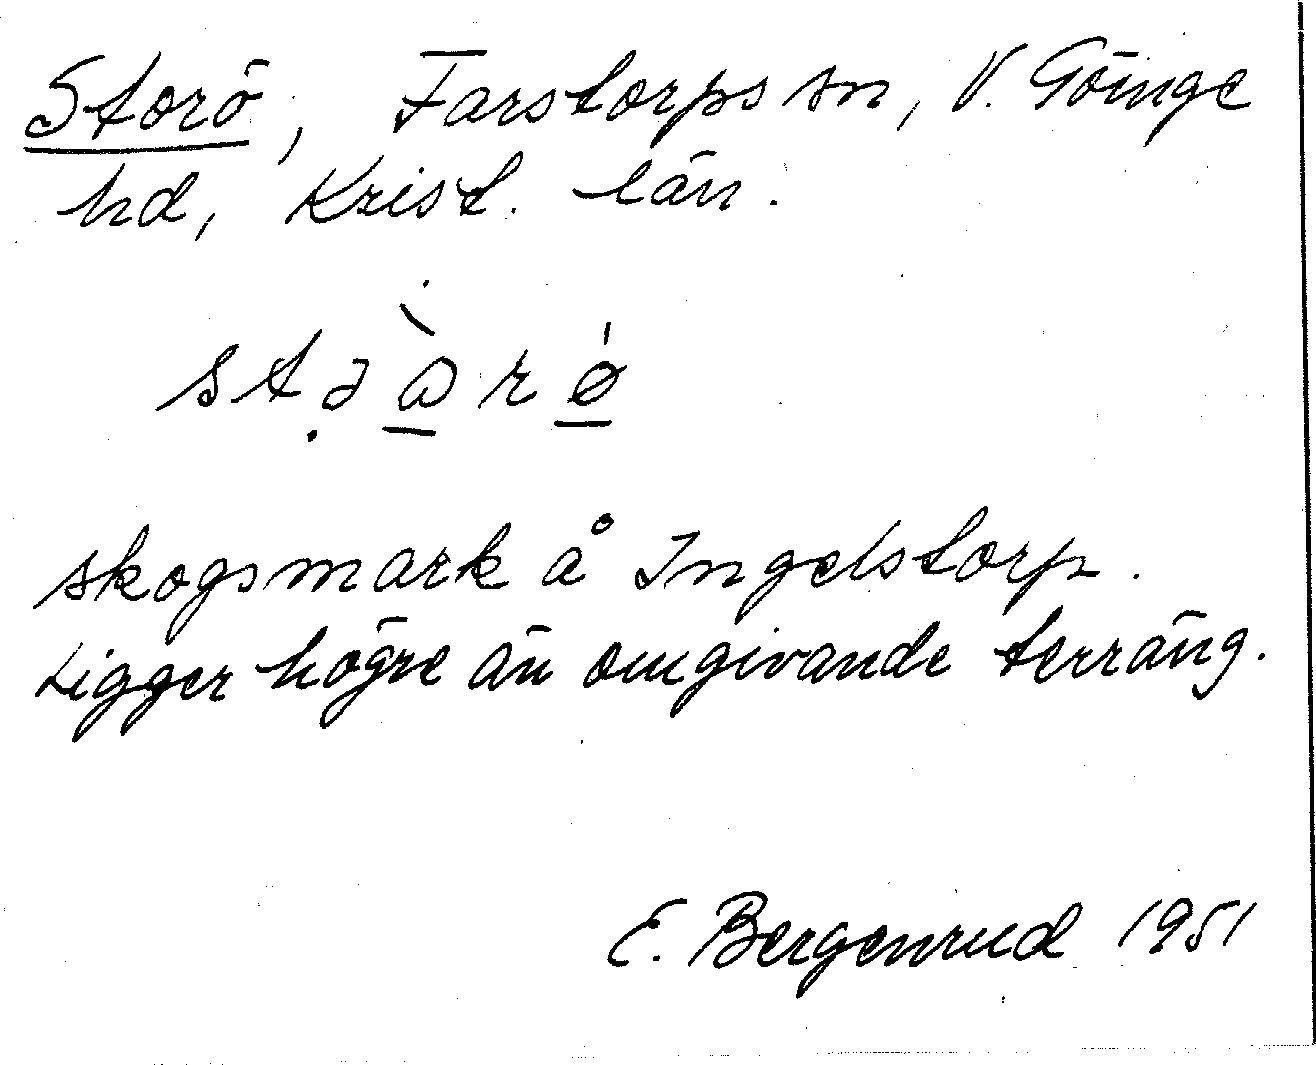 Storö, Farstorps sn, V. Göinge
hd, Krist. län.
stə̣ɷ̱̀rǿ̱
skogsmark å Ingelstorp.
Ligger högre än omgivande terräng.
E. Bergenrud 1951